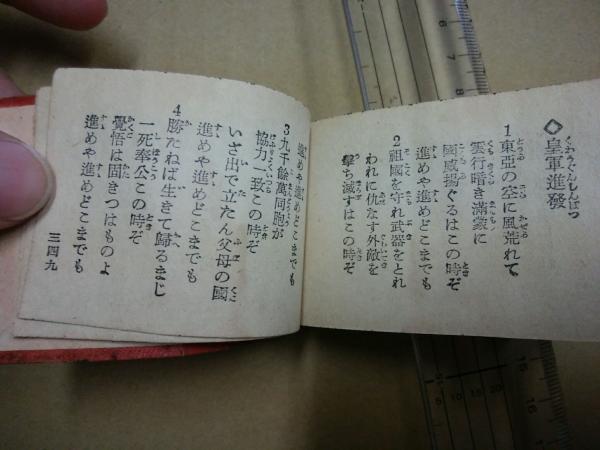 ◇皇軍進發
1東亞の空に風荒れて
雲行暗き滿蒙に
國威揚ぐるはこの時ぞ
進めや進めどこまでも
2祖國を守れ武器をとれ
われに仇なす外敵を
擊ち滅すはこの時ぞ
進めや進めどこまでも
3九千餘萬同胞が
協力一致この時ぞ
いざ出で立たん父母の國
進めや進めどこまでも
4勝たねば生きて歸るまじ
一死奉公この時ぞ
覺悟は固きつはものよ
進めや進めどこまでも
三四九